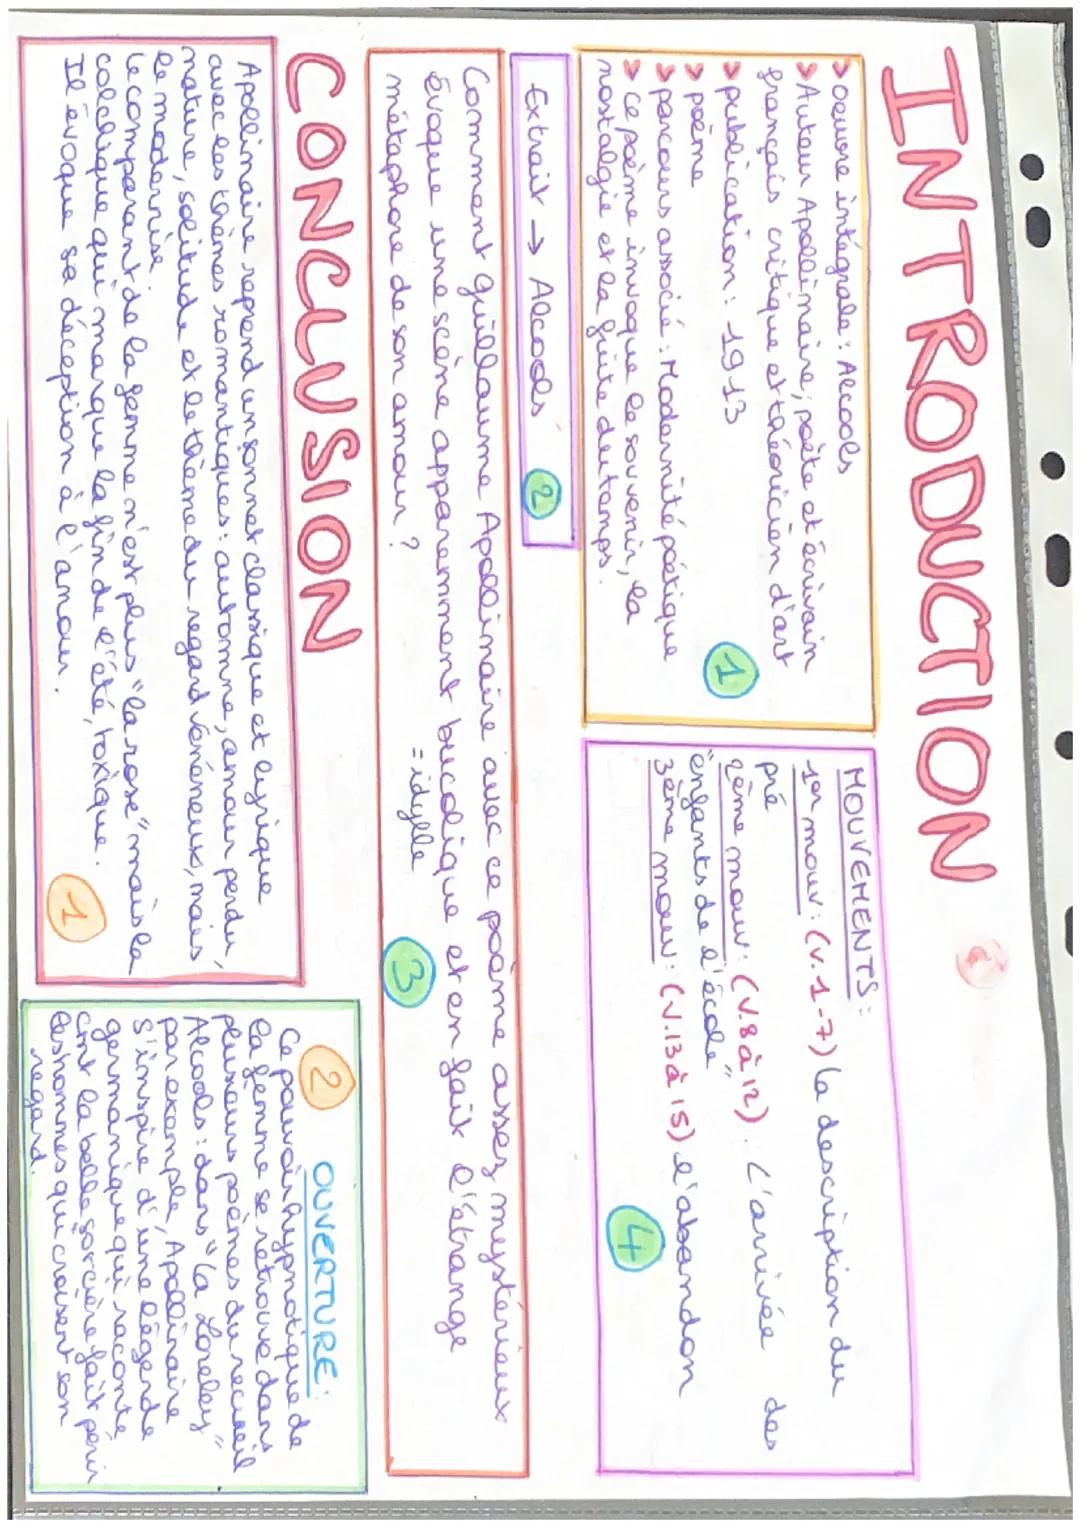 INTRODUCTION
> oeuvre intégrale : Alcools
> Auteur Apollinaire, poète et écrivain
français critique et théoricien d'art
> publication : 1913
> poème
> parcours associé : Modernité poétique
> ce poème invoque le souvenir, la
nostalgie et la fuite du temps.
1
MOUVEMENTS :
1er mouv : (v.1-7) la description du
pré
2ème mouv : (v.8 à 12) : L'arrivée des
"enfants de l'école"
3ème mouv : (v.13 à 15) l'abandon
4
Extrait → Alcools
2
Comment Guillaume Apollinaire avec ce poème assez mystérieux
évoque une scène apparemment bucolique et en fait l'étrange
métaphore de son amour ?
= idylle
3
CONCLUSION
Apollinaire reprend un sonnet classique et lyrique
avec les thèmes romantiques : automne, amour perdu,
nature, solitude et le thème du regard vénéneux, mais
le modernise
le comparant de la femme n'est plus "la rose" mais la
colchique qui marque la fin de l'été, toxique.
Il évoque sa déception à l'amour.
1
2
OUVERTURE :
Ce pouvoir hypnotique de
la femme se retrouve dans
plusieurs poèmes du recueil
Alcools : dans "La Loreley"
par exemple, Apollinaire
s'inspire d'une légende
germanique qui raconte
cmt la belle sorcière fait périr
les hommes qui croisent son
regard.